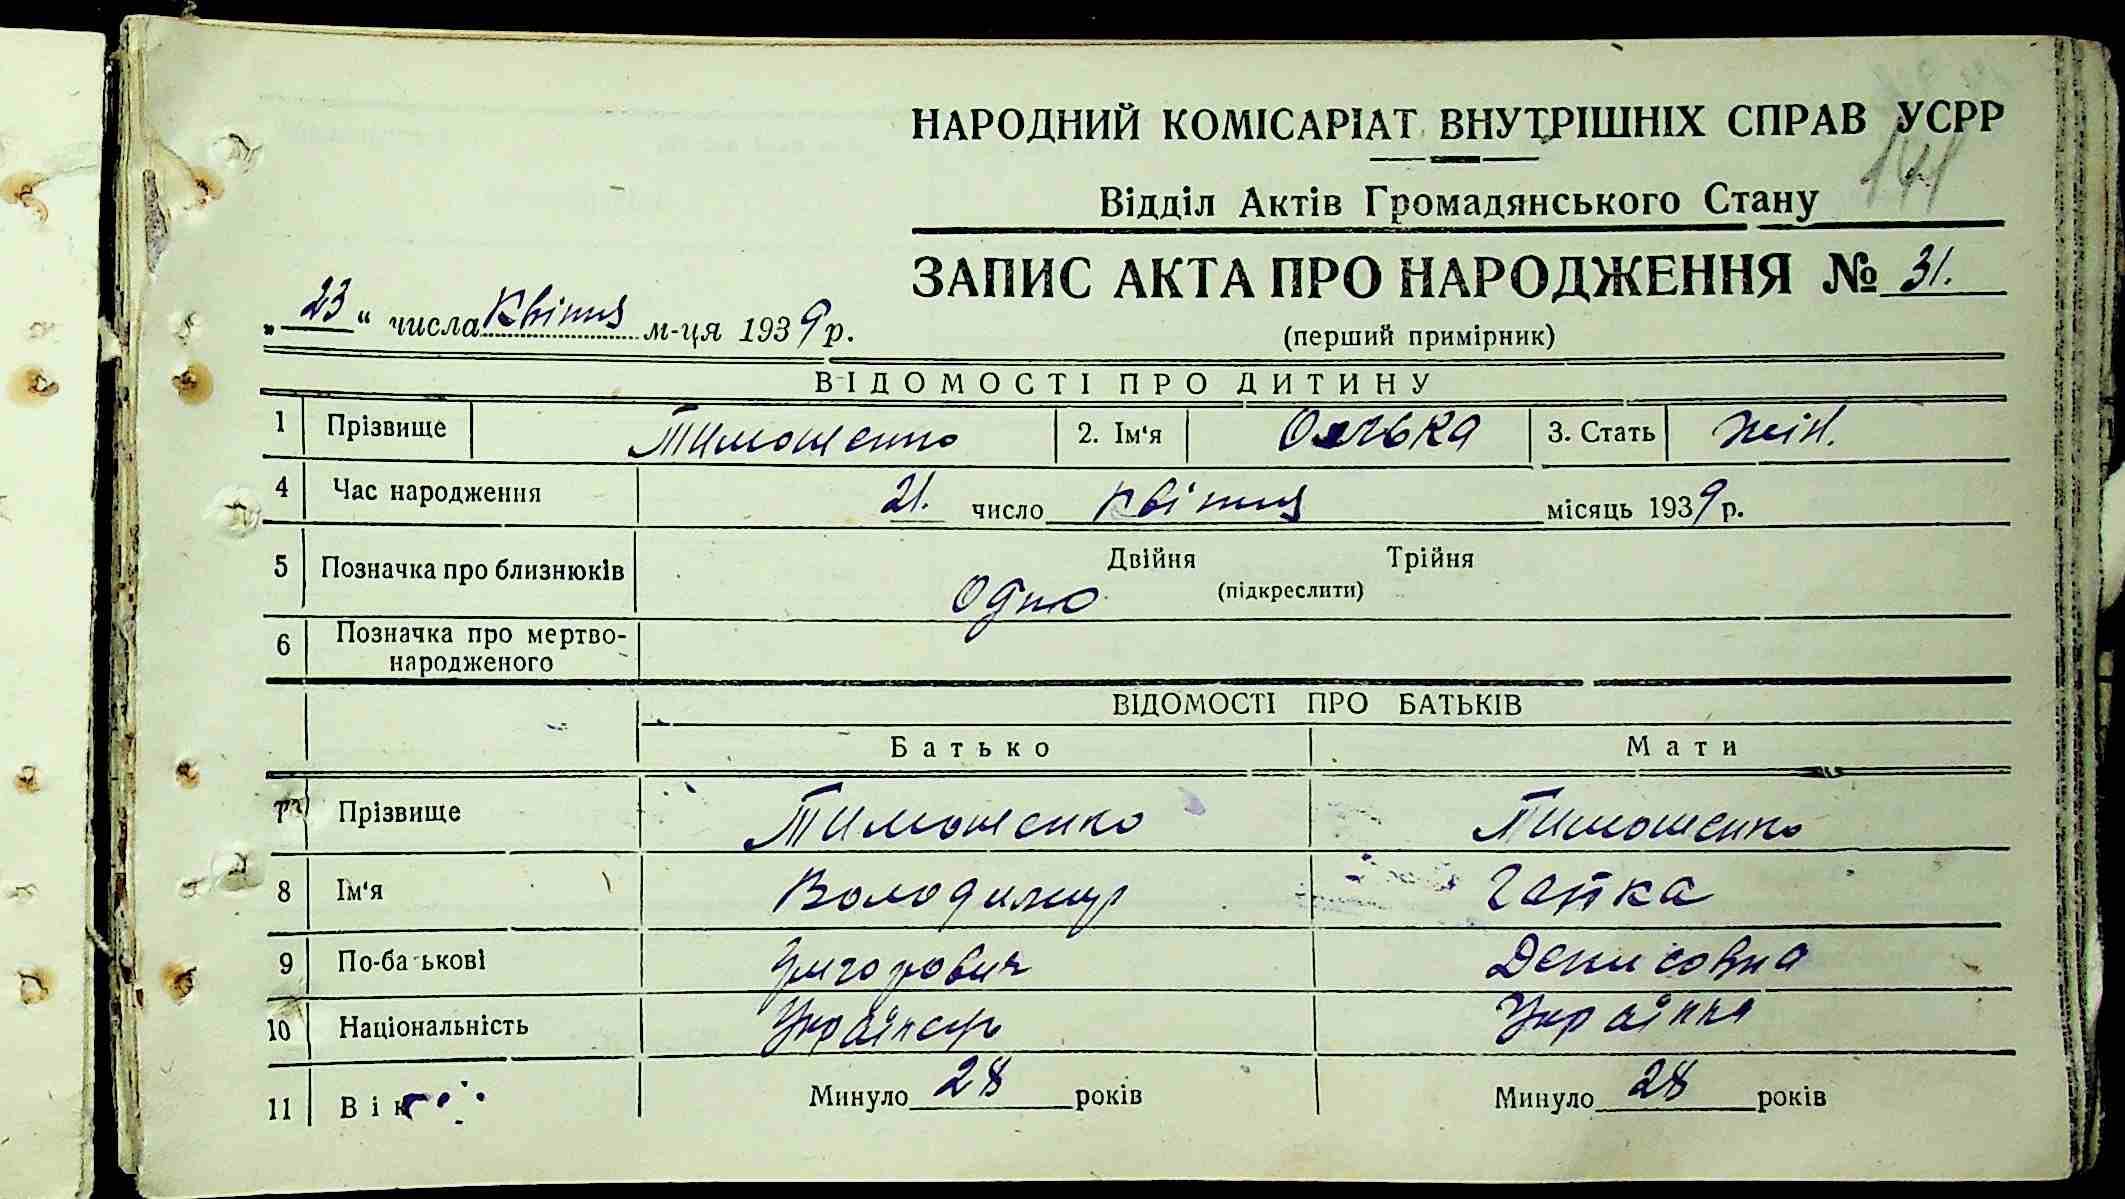 НАРОДНИЙ КОМІСАРІАТ ВНУТРІШНІХ СПРАВ УСРР
141
Відділ Актів Громадянського Стану
ЗАПИС АКТА ПРО НАРОДЖЕННЯ № 31.
„23“ числа Квітня м-ця 1939 р.
(перший примірник)
ВІДОМОСТІ ПРО ДИТИНУ
1 Прізвище Тимошенко 2. Ім‘я Олька 3. Стать жін.
4 Час народження 21. число Квітня місяць 1939 р.
5 Позначка про близнюків Двійня Трійня
(підкреслити)
Одно
6 Позначка про мертво-
народженого
ВІДОМОСТІ ПРО БАТЬКІВ
Батько Мати
7 Прізвище Тимошенко Тимошенко
8 Ім‘я Володимир Гапка
9 По-батькові Григорович Денисовна
10 Національність Українець Українка
11 Вік Минуло 28 років Минуло 28 років